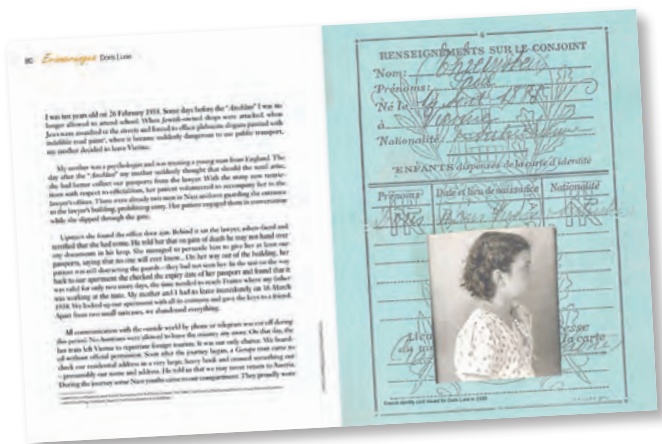 80 Erinnerungen Doris Lurie
I was ten years old on 26 February 1938. Some days before the "Anschluss" I was no
longer allowed to attend school. When Jewish-owned shops were attacked, when
Jews were assaulted in the streets and forced to efface plebiscite slogans painted with
indelible road paint, when it became suddenly dangerous to use public transport,
my mother decided to leave Vienna.
My mother was a psychologist and was treating a young man from England. The
day after the "Anschluss" my mother suddenly thought that should the need arise,
she had better collect our passports from the lawyer. With the many new restric-
tions with respect to officialdom, her patient volunteered to accompany her to the
lawyer's offices. There were already two men in Nazi uniform guarding the entrance
to the lawyer's building, prohibiting entry. Her patient engaged them in conversation
while she slipped through the gate.
Upstairs she found the office door ajar. Behind it sat the lawyer, ashen-faced and
terrified that she had come. He told her that on pain of death he may not hand over
any documents in his keep. She managed to persuade him to give her at least our
passports, saying that no one will ever know... On her way out of the building, her
patient was still distracting the guards – they had not seen her. In the taxi on the way
back to our apartment she checked the expiry date of her passport and found that it
was valid for only two more days, the time needed to reach France where my father
was working at the time. My mother and I had to leave immediately on 16 March
1938. We locked up our apartment with all its contents and gave the keys to a friend.
Apart from two small suitcases, we abandoned everything.
All communication with the outside world by phone or telegram was cut off during
this period. No Austrians were allowed to leave the country any more. On that day, the
last train left Vienna to repatriate foreign tourists. It was our only chance. We board-
ed without official permission. Soon after the journey began, a Gestapo man came to
check our residential address in a very large, heavy book and crossed something out
– presumably our name and address. He told us that we may never return to Austria.
During the journey some Nazi youths came to our compartment. They proudly wore
6
RENSEIGNEMENTS SUR LE CONJOINT
Nom:
Prénoms:
Né le
à
Nationalité
ENFANTS dispensés de la carte d'identité
Prénoms Date et lieu de naissance Nationalité
Doris
Lieu
du
esse
la carte
French identity card issued for Doris Lurie in 1938